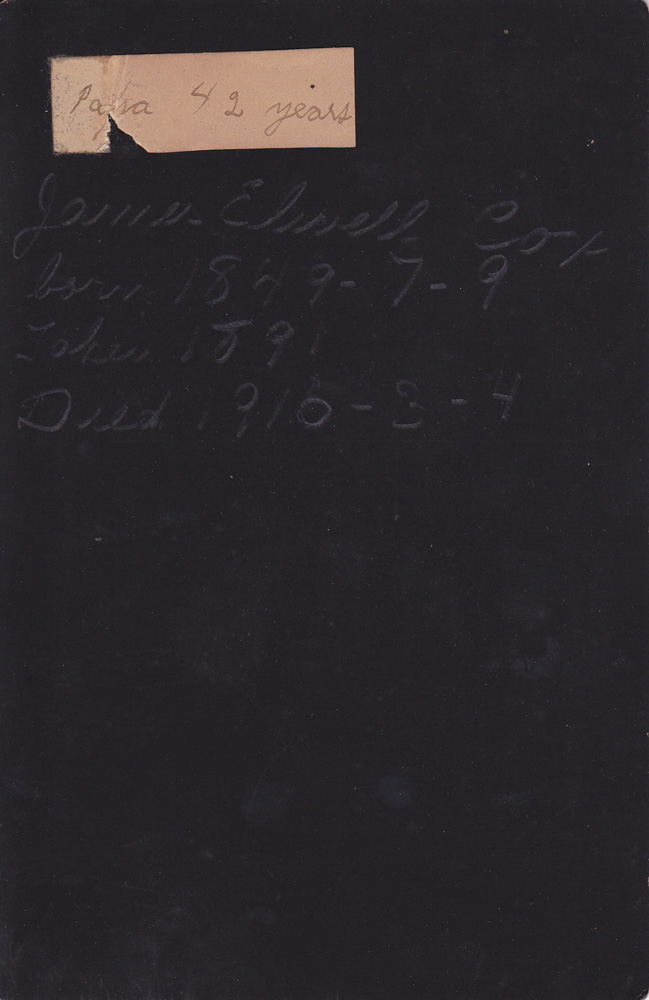 Papa 42 years
James Elwell Cox
born 1849-7-9
Taken 1891
Died 1915-3-4